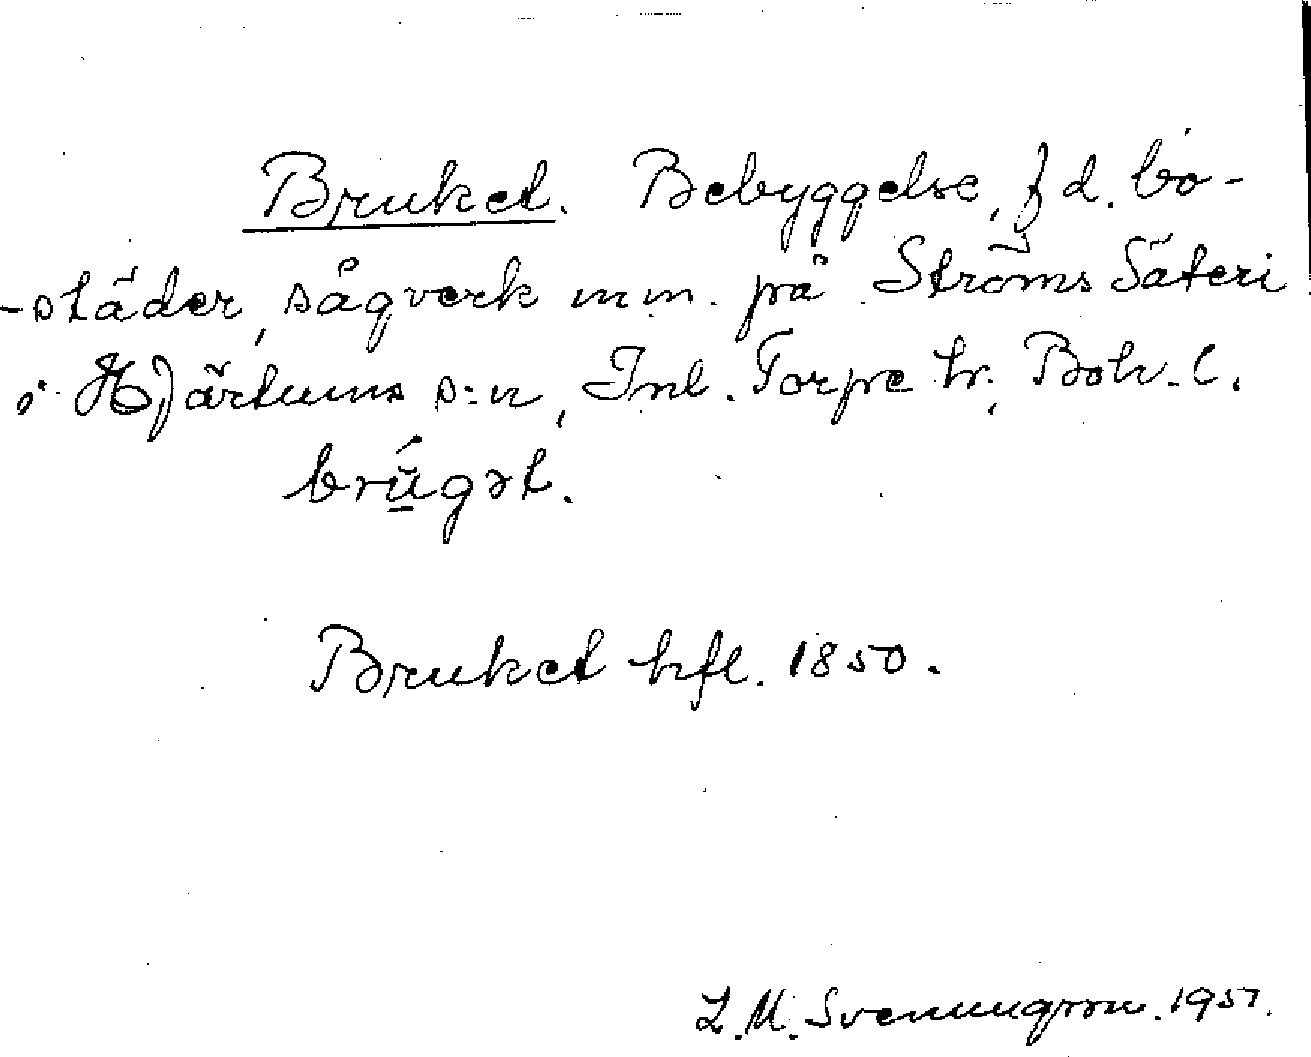 Bruket. Bebyggelse, f d. bo-
-städer, sågverk m.m. på Ströms Säteri
i Hjärtums s:n, Inl. Torpe hr., Boh. l.
brú̲gət.
Bruket hfl. 1850.
L. M. Svenungsson. 1951.